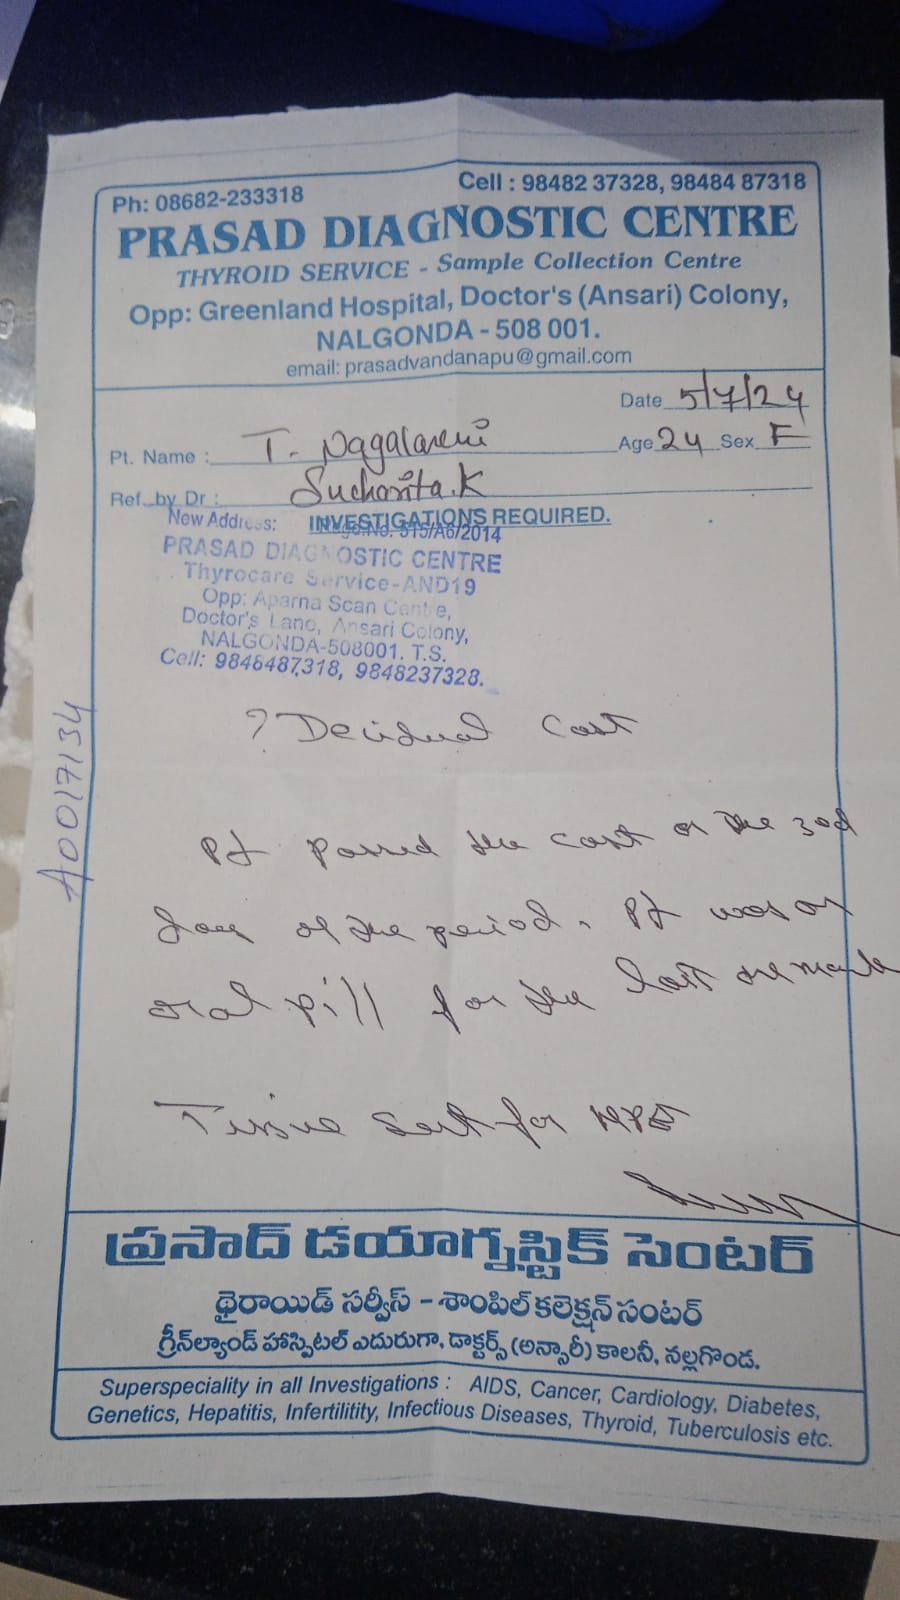 Ph: 08682-233318
Cell : 98482 37328, 98484 87318
PRASAD DIAGNOSTIC CENTRE
THYROID SERVICE - Sample Collection Centre
Opp: Greenland Hospital, Doctor's (Ansari) Colony,
NALGONDA - 508 001.
email: prasadvandanapu@gmail.com
Date 5/7/24
Pt. Name : T.
Age 24 Sex F
Ref. by Dr : Sucharita.K
New Address: INVESTIGATIONS REQUIRED.
Regd.No. 515/A6/2014
PRASAD DIAGNOSTIC CENTRE
Thyrocare Service-AND19
Opp: Aparna Scan Centre,
Doctor's Lane, Ansari Colony,
NALGONDA-508001. T.S.
Cell: 9848487318, 9848237328.
A0017134
? Decidual Cast
Pt passed the cast on the 3rd
day of the period. Pt was on
oral pill for the last one month
Tissue sent for HPE
ప్రసాద్ డయాగ్నస్టిక్ సెంటర్
థైరాయిడ్ సర్వీస్ - శాంపిల్ కలెక్షన్ సంటర్
గ్రీన్‌ల్యాండ్ హాస్పిటల్ ఎదురుగా, డాక్టర్స్ (అన్సారీ) కాలనీ, నల్లగొండ.
Superspeciality in all Investigations : AIDS, Cancer, Cardiology, Diabetes,
Genetics, Hepatitis, Infertilitity, Infectious Diseases, Thyroid, Tuberculosis etc.